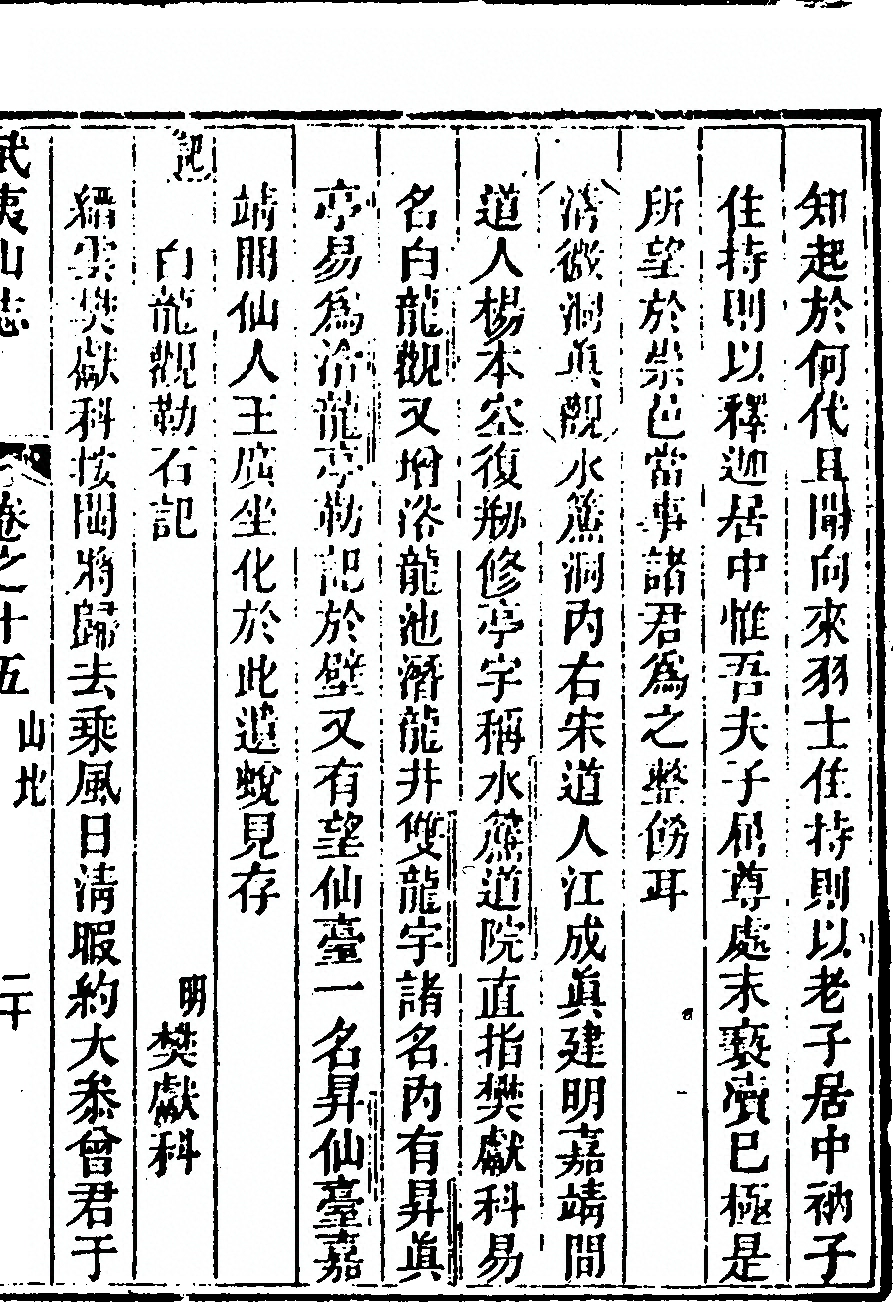 知起於何代且聞向來羽士住持則以老子居中衲子
住持則以釋迦居中惟吾夫子屈尊處末褻瀆已極是
所望於崇邑當事諸君爲之整飭耳
清微洞真觀水簾洞内右宋道人江成眞建明嘉靖間
道人楊本空復剏修亭宇稱水簾道院直指樊獻科易
名白龍觀又增浴龍池潛龍井雙龍宇諸名内有昇眞
亭易爲浴龍亭勒記於壁又有望仙臺一名昇仙臺嘉
靖間仙人王廣坐化於此遺蛻見存
記
白龍觀勒石記 明樊獻科
縉雲樊獻科按閩將歸去乘風日清暇約大叅曾君于
武夷山志 卷之十五 山北 二十